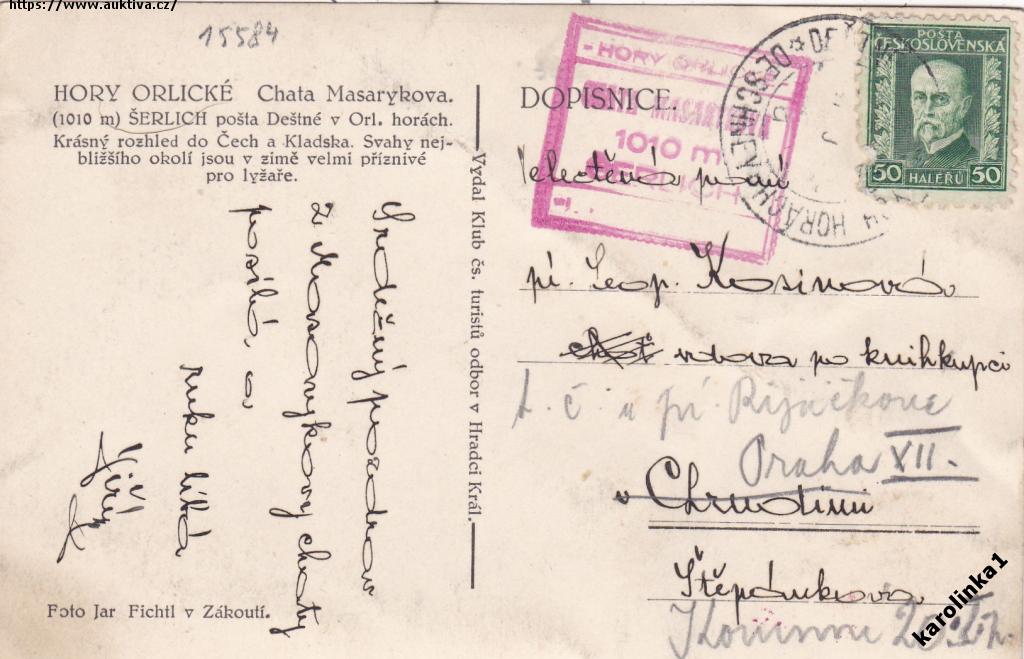 https://www.auktiva.cz/
15584
HORY ORLICKÉ Chata Masarykova.
(1010 m) ŠERLICH pošta Deštné v Orl. horách.
Krásný rozhled do Čech a Kladska. Svahy nej-
bližšího okolí jsou v zimě velmi příznivé
pro lyžaře.
Srdečný pozdrav
z Masarykovy chaty
posílá a
ruku líbá
Jiří
Foto Jar Fichtl v Zákoutí.
Vydal Klub čs. turistů odbor v Hradci Král.
DOPISNICE
- HORY ORLICKÉ
MASARYKOVA
1010 m
ŠERLICH
POŠTA
ČESKOSLOVENSKÁ
50 HALÉŘŮ 50
Velectěná paní
pí. Leop. Kosinová
choť vdova po knihkupci
t. č. u pí Rejnčkove
Praha XII.
v Chrudimi
Štěpánkova
Korunní 20
karolinka1